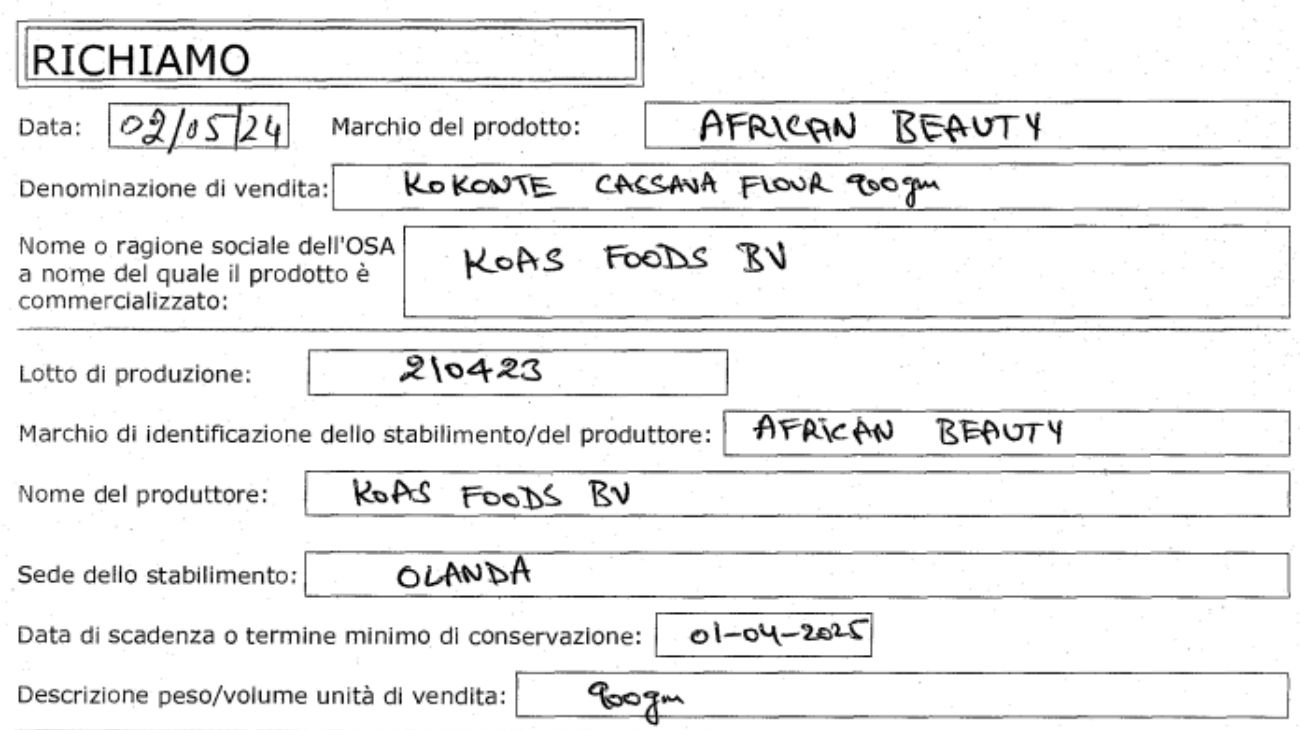 RICHIAMO
Data: 02/05/24 Marchio del prodotto: AFRICAN BEAUTY
Denominazione di vendita: KOKONTE CASSAVA FLOUR 900gm
Nome o ragione sociale dell'OSA
a nome del quale il prodotto è
commercializzato: KOAS FOODS BV
Lotto di produzione: 210423
Marchio di identificazione dello stabilimento/del produttore: AFRICAN BEAUTY
Nome del produttore: KOAS FOODS BV
Sede dello stabilimento: OLANDA
Data di scadenza o termine minimo di conservazione: 01-04-2025
Descrizione peso/volume unità di vendita: 900gm